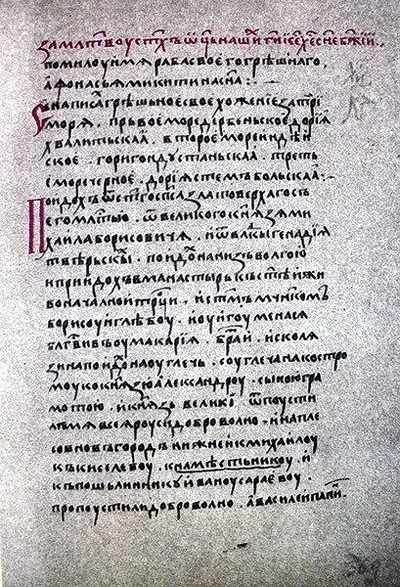 За млтвоу ст҃хъ ѿць наши́ ги і҃се х҃е сн҃е бж҃ии,
помилоу имѧ раба своего грѣшнаго,
афонасьѧ микитина сн҃а :·
написа́ грѣшьное свое хоженіе за три
морѧ . прьвое море дерьбеньское дорїѧ
хвалитьскаа . второе море индѣи
ское . горигондустаньскаа . третье
море черное . дорїѧ стемъбольскаа :·
поидохъ ѿ ст҃го спса з
его млтїю . ѿ великого кнѧзѧ ми
хаила борисовичѧ . и ѿ влкы генадїѧ
твѣрьскы́ . поидо́ на низъ волгою
и приидохъ в манастырь къ ст҃ѣи жи
воначалнои тр҃ци . и ст҃мъ мч҃нкомъ
борисоу и глѣбоу . и оу игоумена сѧ
блг҃вивъ оу макарїа . бра́и . и с колѧ
зина поидо́ на оуглечь . с оуглеча на костро
моу ко кнѧзю александроу . с ыною гра
мотою . и кнѧзь великі́ ѿпоусти
мѧ всеѧ роуси доброволно . и на пле
со в новъгородъ нижнеи к михаилоу
къ киселевоу . к намѣстьникоу . и
къ пошьлинникоу иваноу сараевоу .
пропоустили доброволно . а василеи папи́ .